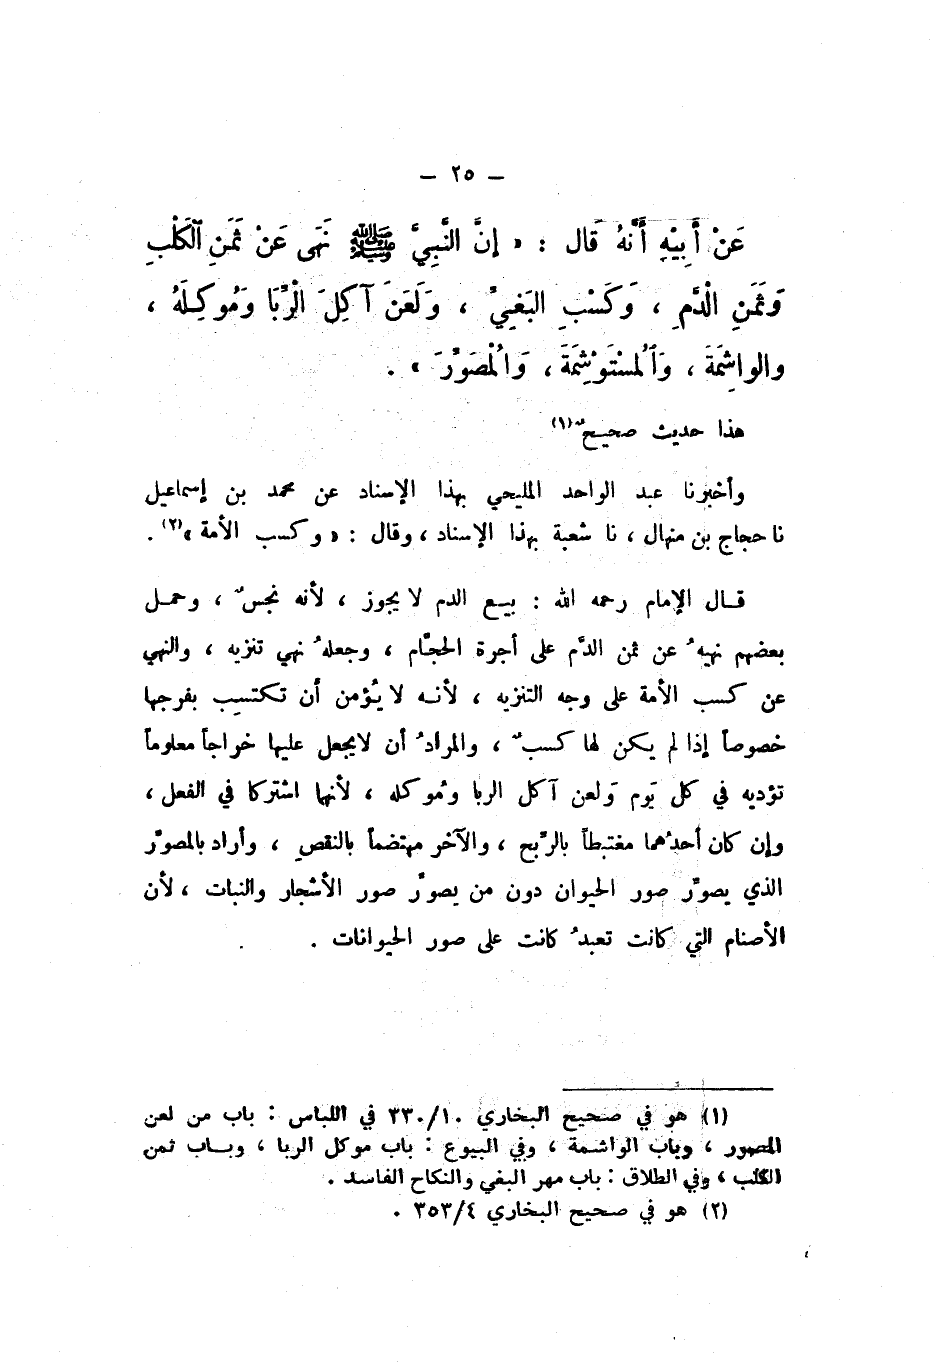 — ٢٥ —
عَنْ أَبِيْهِ أَنَّهُ قَال : « إنَّ النَّبِيَّ ﷺ نَهَى عَنْ ثَمَنِ الكَلْبِ
وَثَمَنِ الْدَّمِ ، وَكَسْبِ البَغِيِّ ، وَلَعَنَ آكِلَ الْرِّبَا وَمُوكِلَهُ ،
والواشِمَةَ ، وَالمُسْتَوْشِمَةَ ، وَالْمُصَوِّرَ » .
هذا حديث صحيحٌ(١)
وأخبرنا عبد الواحد المليحي بهذا الإسناد عن محمد بن إسماعيل
نا حجاج بن منهال ، نا شعبة بهذا الإسناد ، وقال : « وكسب الأمة »(٢) .
قال الإمام رحمه الله : بيع الدم لا يجوز ، لأنه نجسٌ ، وحمل
بعضهم نهيهُ عن ثمن الدَّم على أجرة الحجَّام ، وجعلهُ نهي تنزيه ، والنهي
عن كسب الأمة على وجه التنزيه ، لأنه لا يُؤمن أن تكتسِب بفرجها
خصوصاً إذا لم يكن لها كسبٌ ، والمرادُ أن لايجعل عليها خراجاً معلوماً
تؤديه في كل يَوم وَلعن آكل الربا ومُوكله ، لأنها اشتركا في الفعل ،
وإن كان أحدُهما مغتبطاً بالرّبح ، والآخر مهتضماً بالنقصِ ، وأراد بالمصوِّر
الذي يصوِّر صور الحيوان دون من يصوِّر صور الأشجار والنبات ، لأن
الأصنام التي كانت تعبدُ كانت على صور الحيوانات .
(١) هو في صحيح البخاري ٣٣٠/١٠ في اللباس : باب من لعن
المصور ، وباب الواشمة ، وفي البيوع : باب موكل الربا ، وباب ثمن
الكلب ، وفي الطلاق : باب مهر البغي والنكاح الفاسد .
(٢) هو في صحيح البخاري ٣٥٣/٤ .